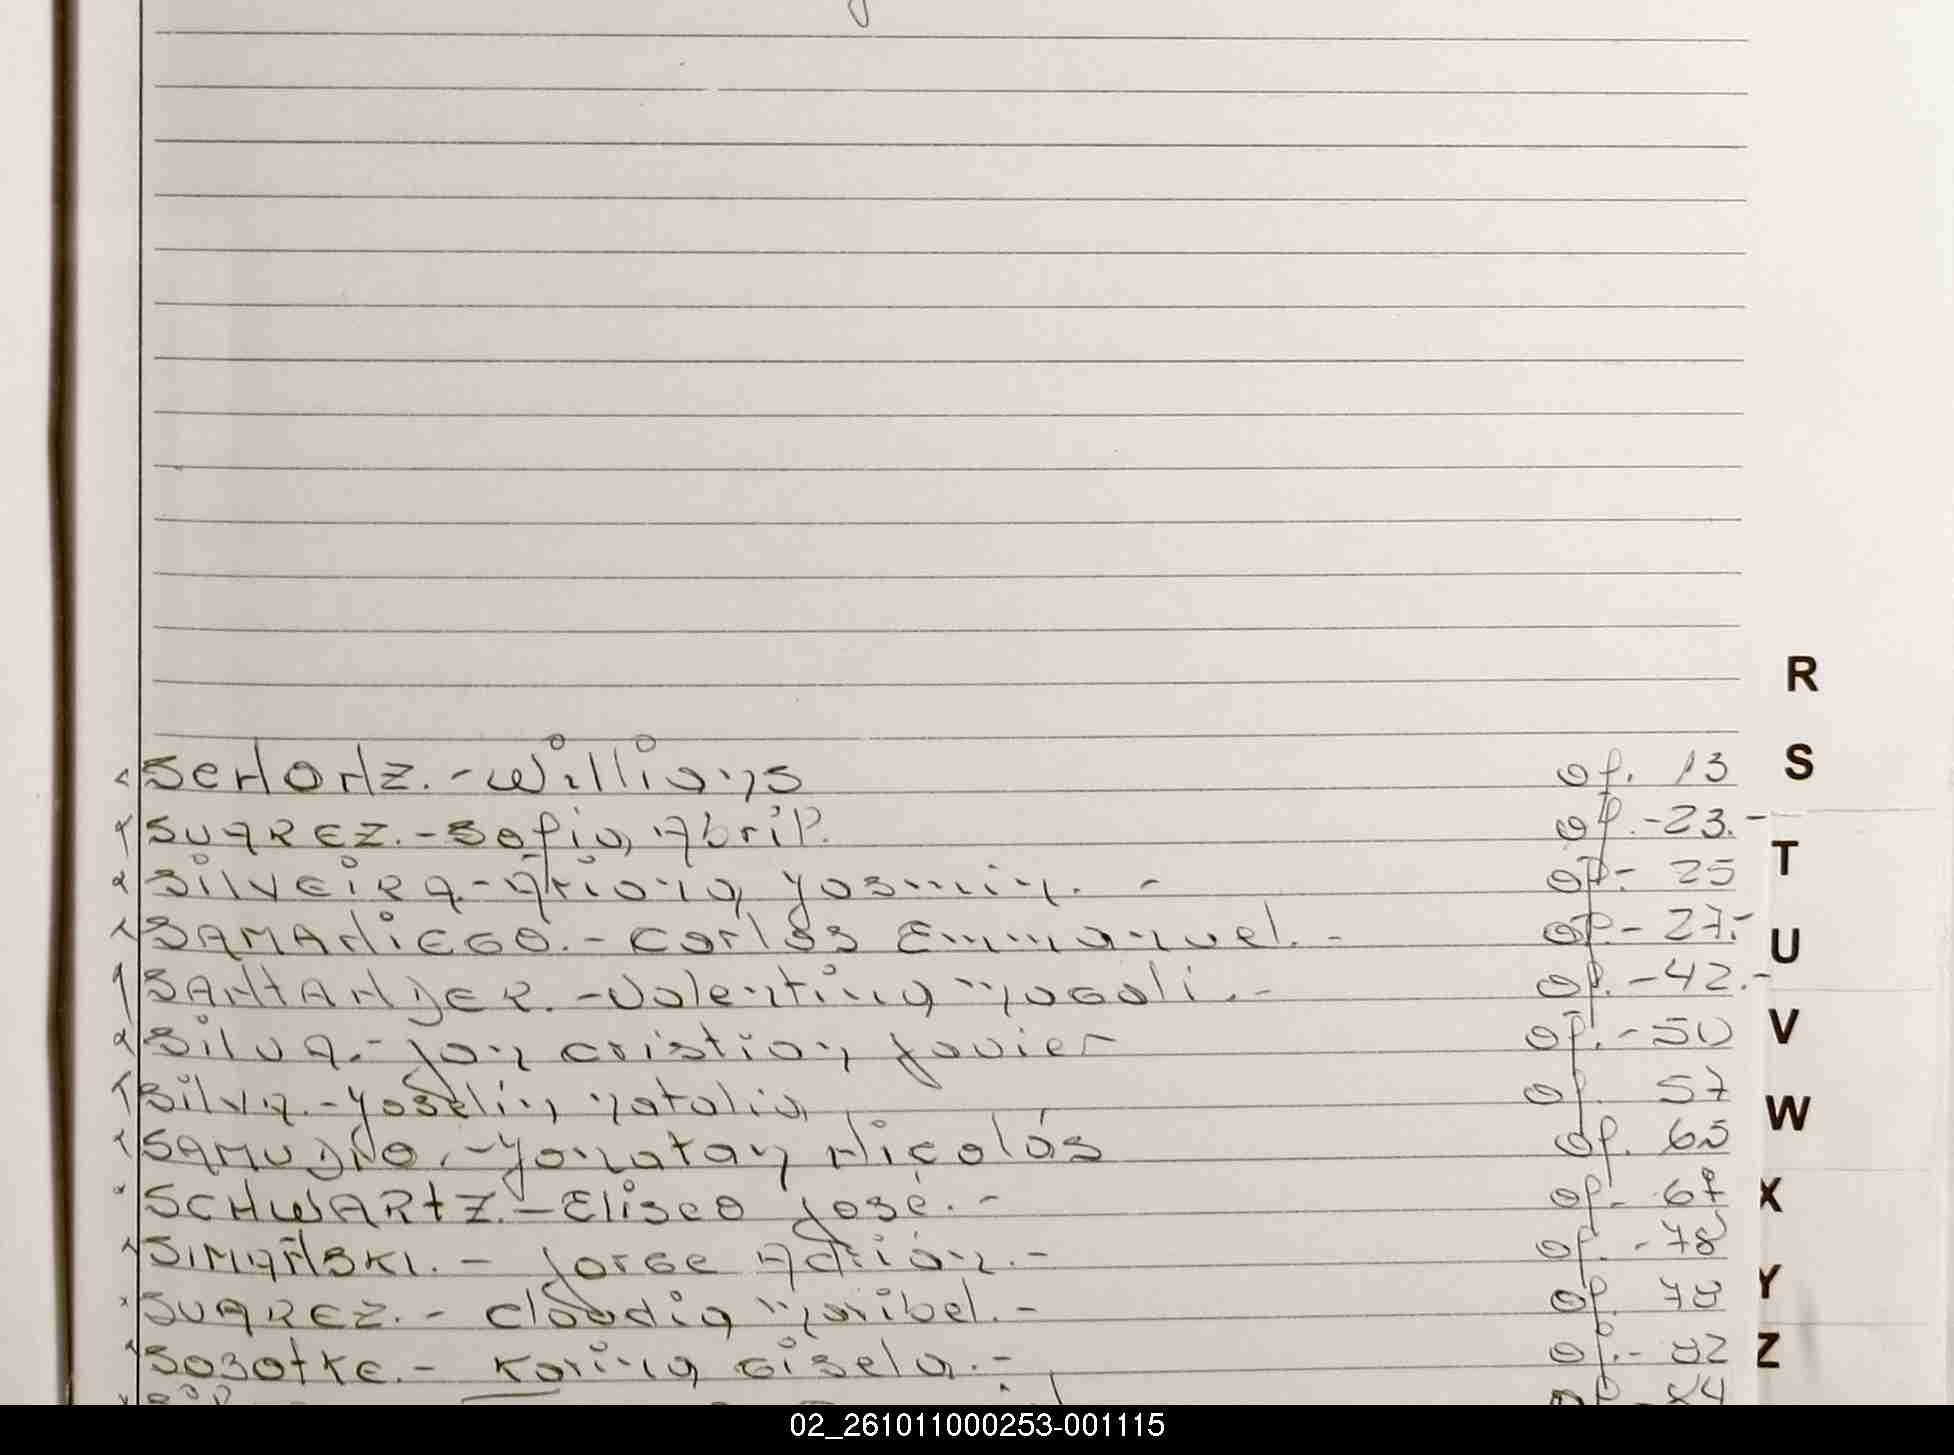 R
SeNONZ.- Williams of. 13 S
SUAREZ.- Sofia Abril. of.-23.-
Silveira.- Ariana Yasmin. - of- 25 T
SAMANiEGO.- Carlos Emmanuel. - of.- 27.- U
SANtANDER.- Valentina Magali.- of.-42.-
Silva.- Jon Cristian Javier of.-50 V
Silva.- Yoselin Natalia of. 57 W
SAMUDiO.- Yonatan Nicolás of. 65
SCHWARtZ.- Eliseo José.- of- 67 X
SiMAÑSKI.- Jorge Adrián.- of.-78
SUAREZ.- Claudia Maribel.- of. 78 Y
SOSOtKe.- Karina Gisela.- of.- 82 Z
of.-84
02_261011000253-001115